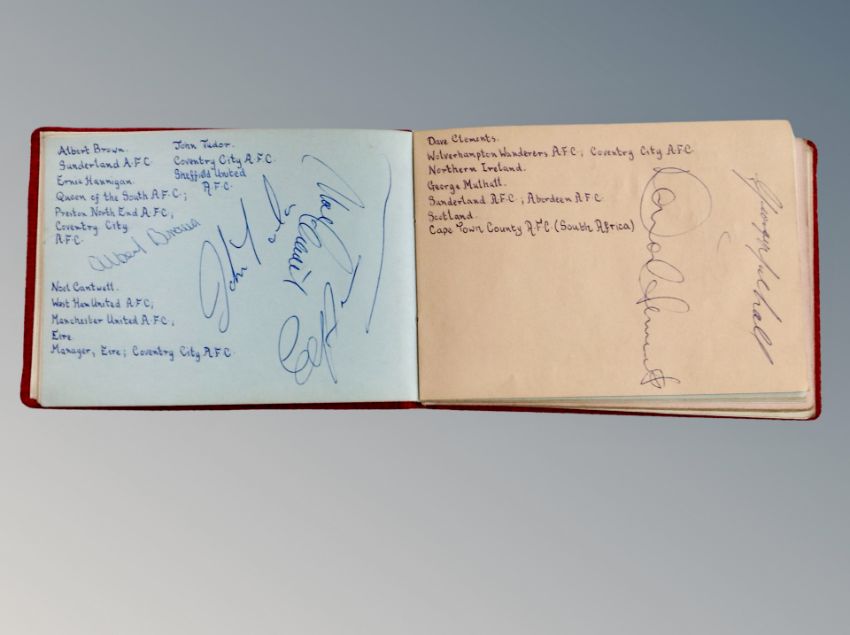 Albert Brown.
Sunderland A.F.C
Ernie Hannigan.
Queen of the South A.F.C.;
Preston North End A.F.C;
Coventry City
A.F.C.
John Tudor.
Coventry City A.F.C.
Sheffield United
A.F.C.
Albert Brown
John T
Noel Cantwell
Noel Cantwell.
West Ham United A.F.C;
Manchester United A.F.C;
Eire.
Manager, Eire; Coventry City A.F.C.
Dave Clements.
Wolverhampton Wanderers A.F.C; Coventry City A.F.C
Northern Ireland.
George Mulhall.
Sunderland A.F.C; Aberdeen A.F.C
Scotland.
Cape Town County A.F.C (South Africa)
David Clements
George Mulhall